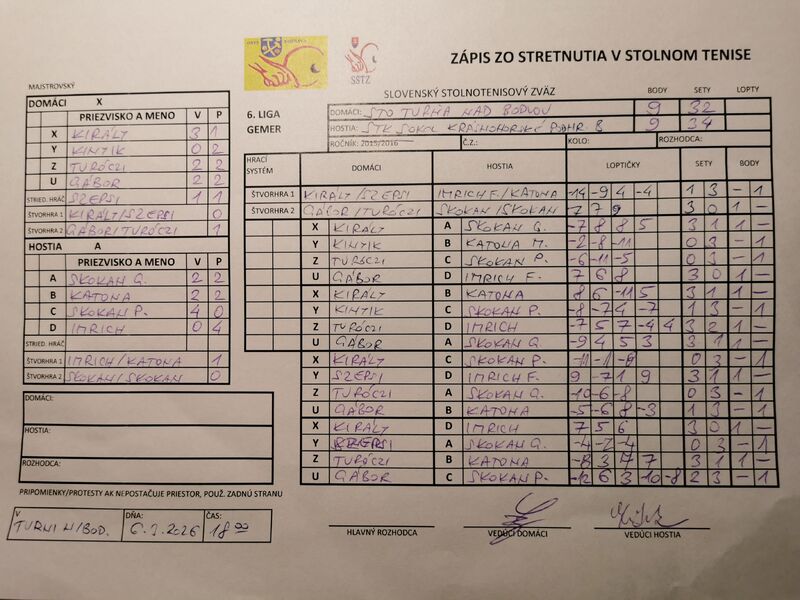 ZÁPIS ZO STRETNUTIA V STOLNOM TENISE
SSTZ
MAJSTROVSKÝ
SLOVENSKÝ STOLNOTENISOVÝ ZVÄZ BODY SETY LOPTY
6. LIGA GEMER
DOMÁCI: STO TURŇA NAD BODVOU 9 32
HOSTIA: STK SOKOL KRÁSNOHORSKÉ PODHR B 9 34
ROČNÍK: 2015/2016 Č.Z.: KOLO: ROZHODCA:
DOMÁCI X
PRIEZVISKO A MENO V P
X KIRÁLY 3 1
Y KINTIK 0 2
Z TURÓCZI 2 2
U GÁBOR 2 2
STRIED. HRÁČ SZEPSI 1 1
ŠTVORHRA 1 KIRÁLY/SZEPSI 0
ŠTVORHRA 2 GÁBOR/TURÓCZI 1
HOSTIA A
PRIEZVISKO A MENO V P
A SKOKAN G. 2 2
B KATONA 2 2
C SKOKAN P. 4 0
D IMRICH 0 4
STRIED. HRÁČ
ŠTVORHRA 1 IMRICH/KATONA 1
ŠTVORHRA 2 SKOKAN/SKOKAN 0
DOMÁCI:
HOSTIA:
ROZHODCA:
PRIPOMIENKY/PROTESTY AK NEPOSTAČUJE PRIESTOR, POUŽ. ZADNÚ STRANU
V TURNI N/BOD. DŇA: 6.3.2026 ČAS: 18 00
HRACÍ SYSTÉM DOMÁCI HOSTIA LOPTIČKY SETY BODY
ŠTVORHRA 1 KIRÁLY/SZEPSI IMRICH F./KATONA -14 -9 4 -4 1 3 - 1
ŠTVORHRA 2 GÁBOR/TURÓCZI SKOKAN/SKOKAN 7 7 9 3 0 1 -
X KIRÁLY A SKOKAN G. -7 8 8 5 3 1 1 -
Y KINTIK B KATONA M. -2 -8 -11 0 3 - 1
Z TURÓCZI C SKOKAN P. -6 -11 -5 0 3 - 1
U GÁBOR D IMRICH F. 7 6 8 3 0 1 -
X KIRÁLY B KATONA 8 6 -11 5 3 1 1 -
Y KINTIK C SKOKAN P. -8 -7 4 -7 1 3 - 1
Z TURÓCZI D IMRICH -7 5 7 -4 4 3 2 1 -
U GÁBOR A SKOKAN G -9 4 5 3 3 1 1 -
X KIRÁLY C SKOKAN P. 0 3 - 1
Y SZEPSI D IMRICH F. 9 -7 1 9 3 1 1 -
Z TURÓCZI A SKOKAN G. -10 -6 -8 0 3 - 1
U GÁBOR B KATONA -5 -6 8 -3 1 3 - 1
X KIRÁLY D IMRICH 7 5 6 3 0 1 -
Y SZEPSI A SKOKAN G. -4 -2 -4 0 3 - 1
Z TURÓCZI B KATONA -8 3 7 7 3 1 1 -
U GÁBOR C SKOKAN P. -12 6 3 10 -8 2 3 - 1
HLAVNÝ ROZHODCA VEDÚCI DOMÁCI VEDÚCI HOSTIA